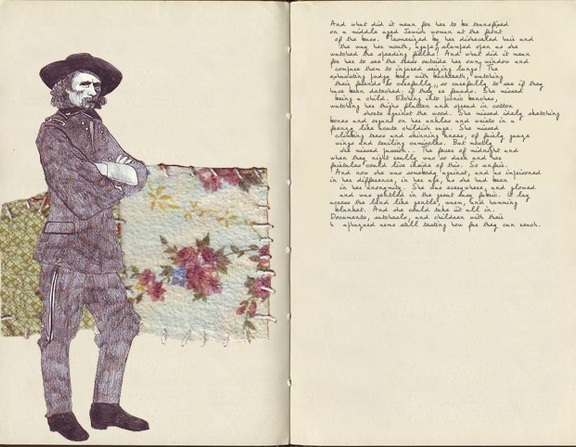 And what did it mean for her to be transfixed
on a middle aged Jewish woman at the front
of the bus. Mesmerized by her dishevelled hair and
the way her mouth, agape, clamped open as she
watched the speeding fields. And what did it mean
for her to see the trees outside her own window and
compare them to injured seizing lungs? The
judge
their so carefully, so carefully to see if they
have been detached, if they are frauds. She missed
being a child. Etching into picnic benches,
watching her thighs flatten and spread in cotton
shorts against the wood. She missed idly sketching
bones and organs on her ankles and waists in a
She missed
climbing trees and skinning knees, of fairly gauze
wings and But mostly
she missed passion... The of midnight and
when they night really was so dark and her
would live inside of this. So unfair.
And now she was somebody against, and so imprisoned
in her difference, in her age, as she had been
in her anonymity. She was everywhere, and glowed
and was in the great fabric. It lay
across the land like gentle, warm, and humming
blanket. And she could take it all in.
Documents, and children with their
arms still testing how far they can reach.